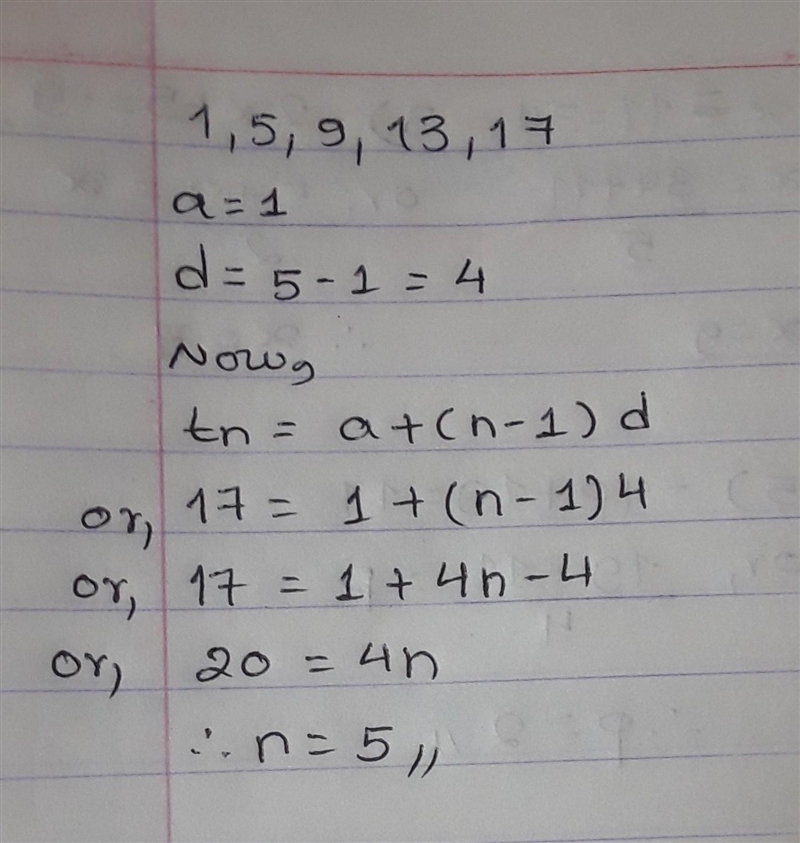 1, 5, 9, 13, 17
a = 1
d = 5 - 1 = 4
Now,
tn = a + (n - 1) d
or, 17 = 1 + (n - 1) 4
or, 17 = 1 + 4n - 4
or, 20 = 4n
∴ n = 5 //